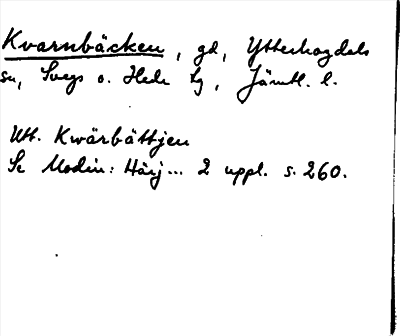 Kvarnbäcken, gd, Ytterhogdals
sn, Svegs o. Hede tg, Jämtl. l.
Utt. Kwärbättjen
Se Modin: Härj... 2 uppl. s. 260.